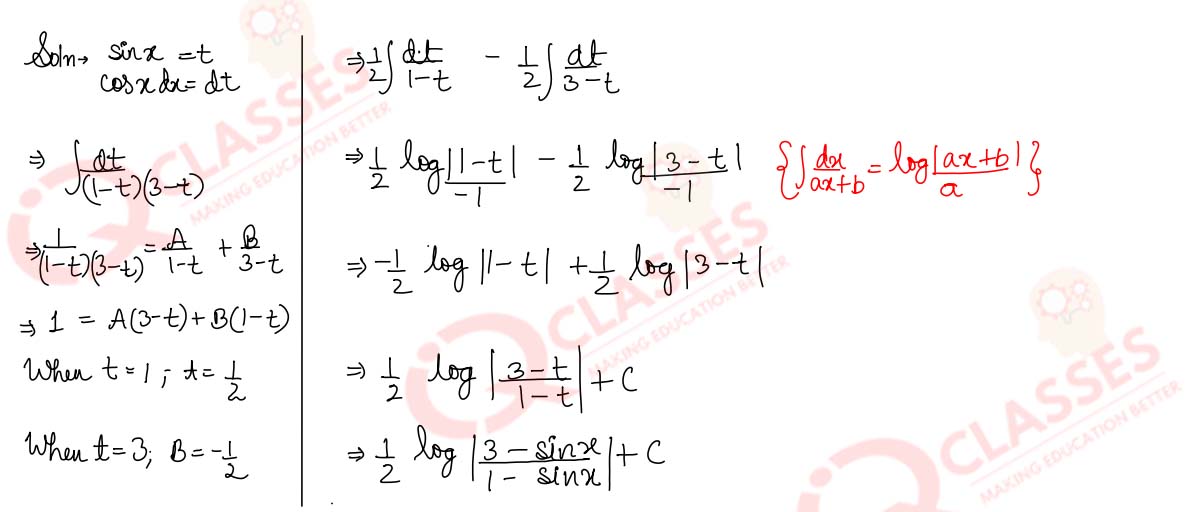 Soln→ sinx = t
cosx dx = dt
⇒ ∫ dt/(1-t)(3-t)
⇒ 1/(1-t)(3-t) = A/1-t + B/3-t
⇒ 1 = A(3-t) + B(1-t)
When t = 1 ; A = 1/2
When t = 3; B = -1/2
⇒ 1/2 ∫ dt/1-t - 1/2 ∫ dt/3-t
⇒ 1/2 log|1-t|/-1 - 1/2 log|3-t|/-1 {∫ dx/ax+b = log|ax+b|/a}
⇒ -1/2 log|1-t| + 1/2 log|3-t|
⇒ 1/2 log|3-t/1-t| + C
⇒ 1/2 log|3-sinx/1-sinx| + C
CLASSES
MAKING EDUCATION BETTER
CLASSES
MAKING EDUCATION BETTER
CLASSES
MAKING EDUCATION BETTER